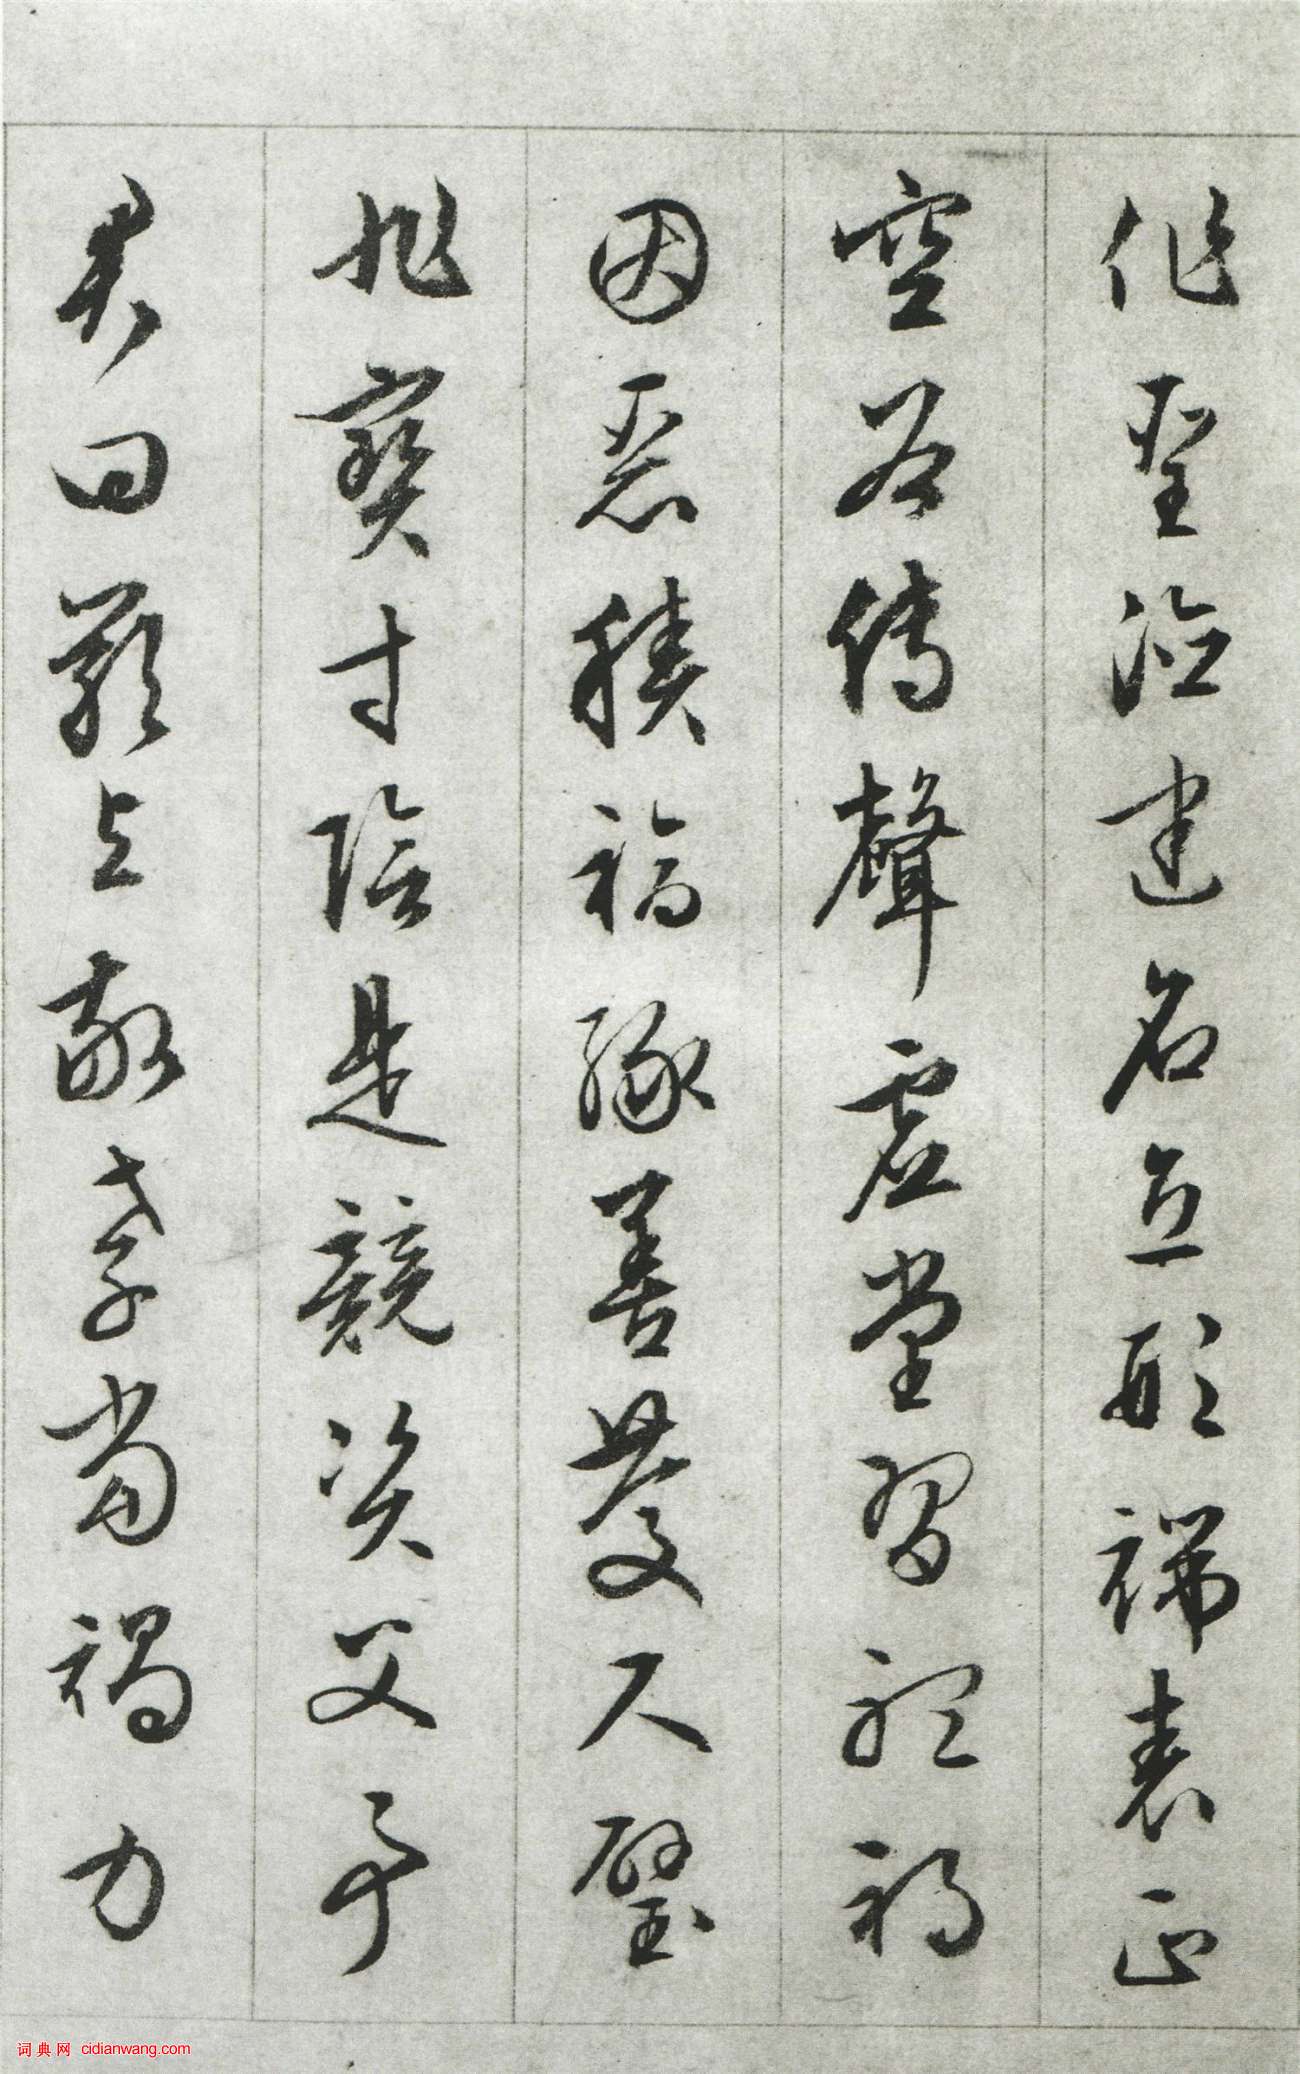 作聖德建名立形端表正
空谷傳聲虛堂習聽禍
因惡積福緣善慶尺璧
非寶寸陰是競資父事
君曰嚴与敬孝當竭力
词典网 cidianwang.com